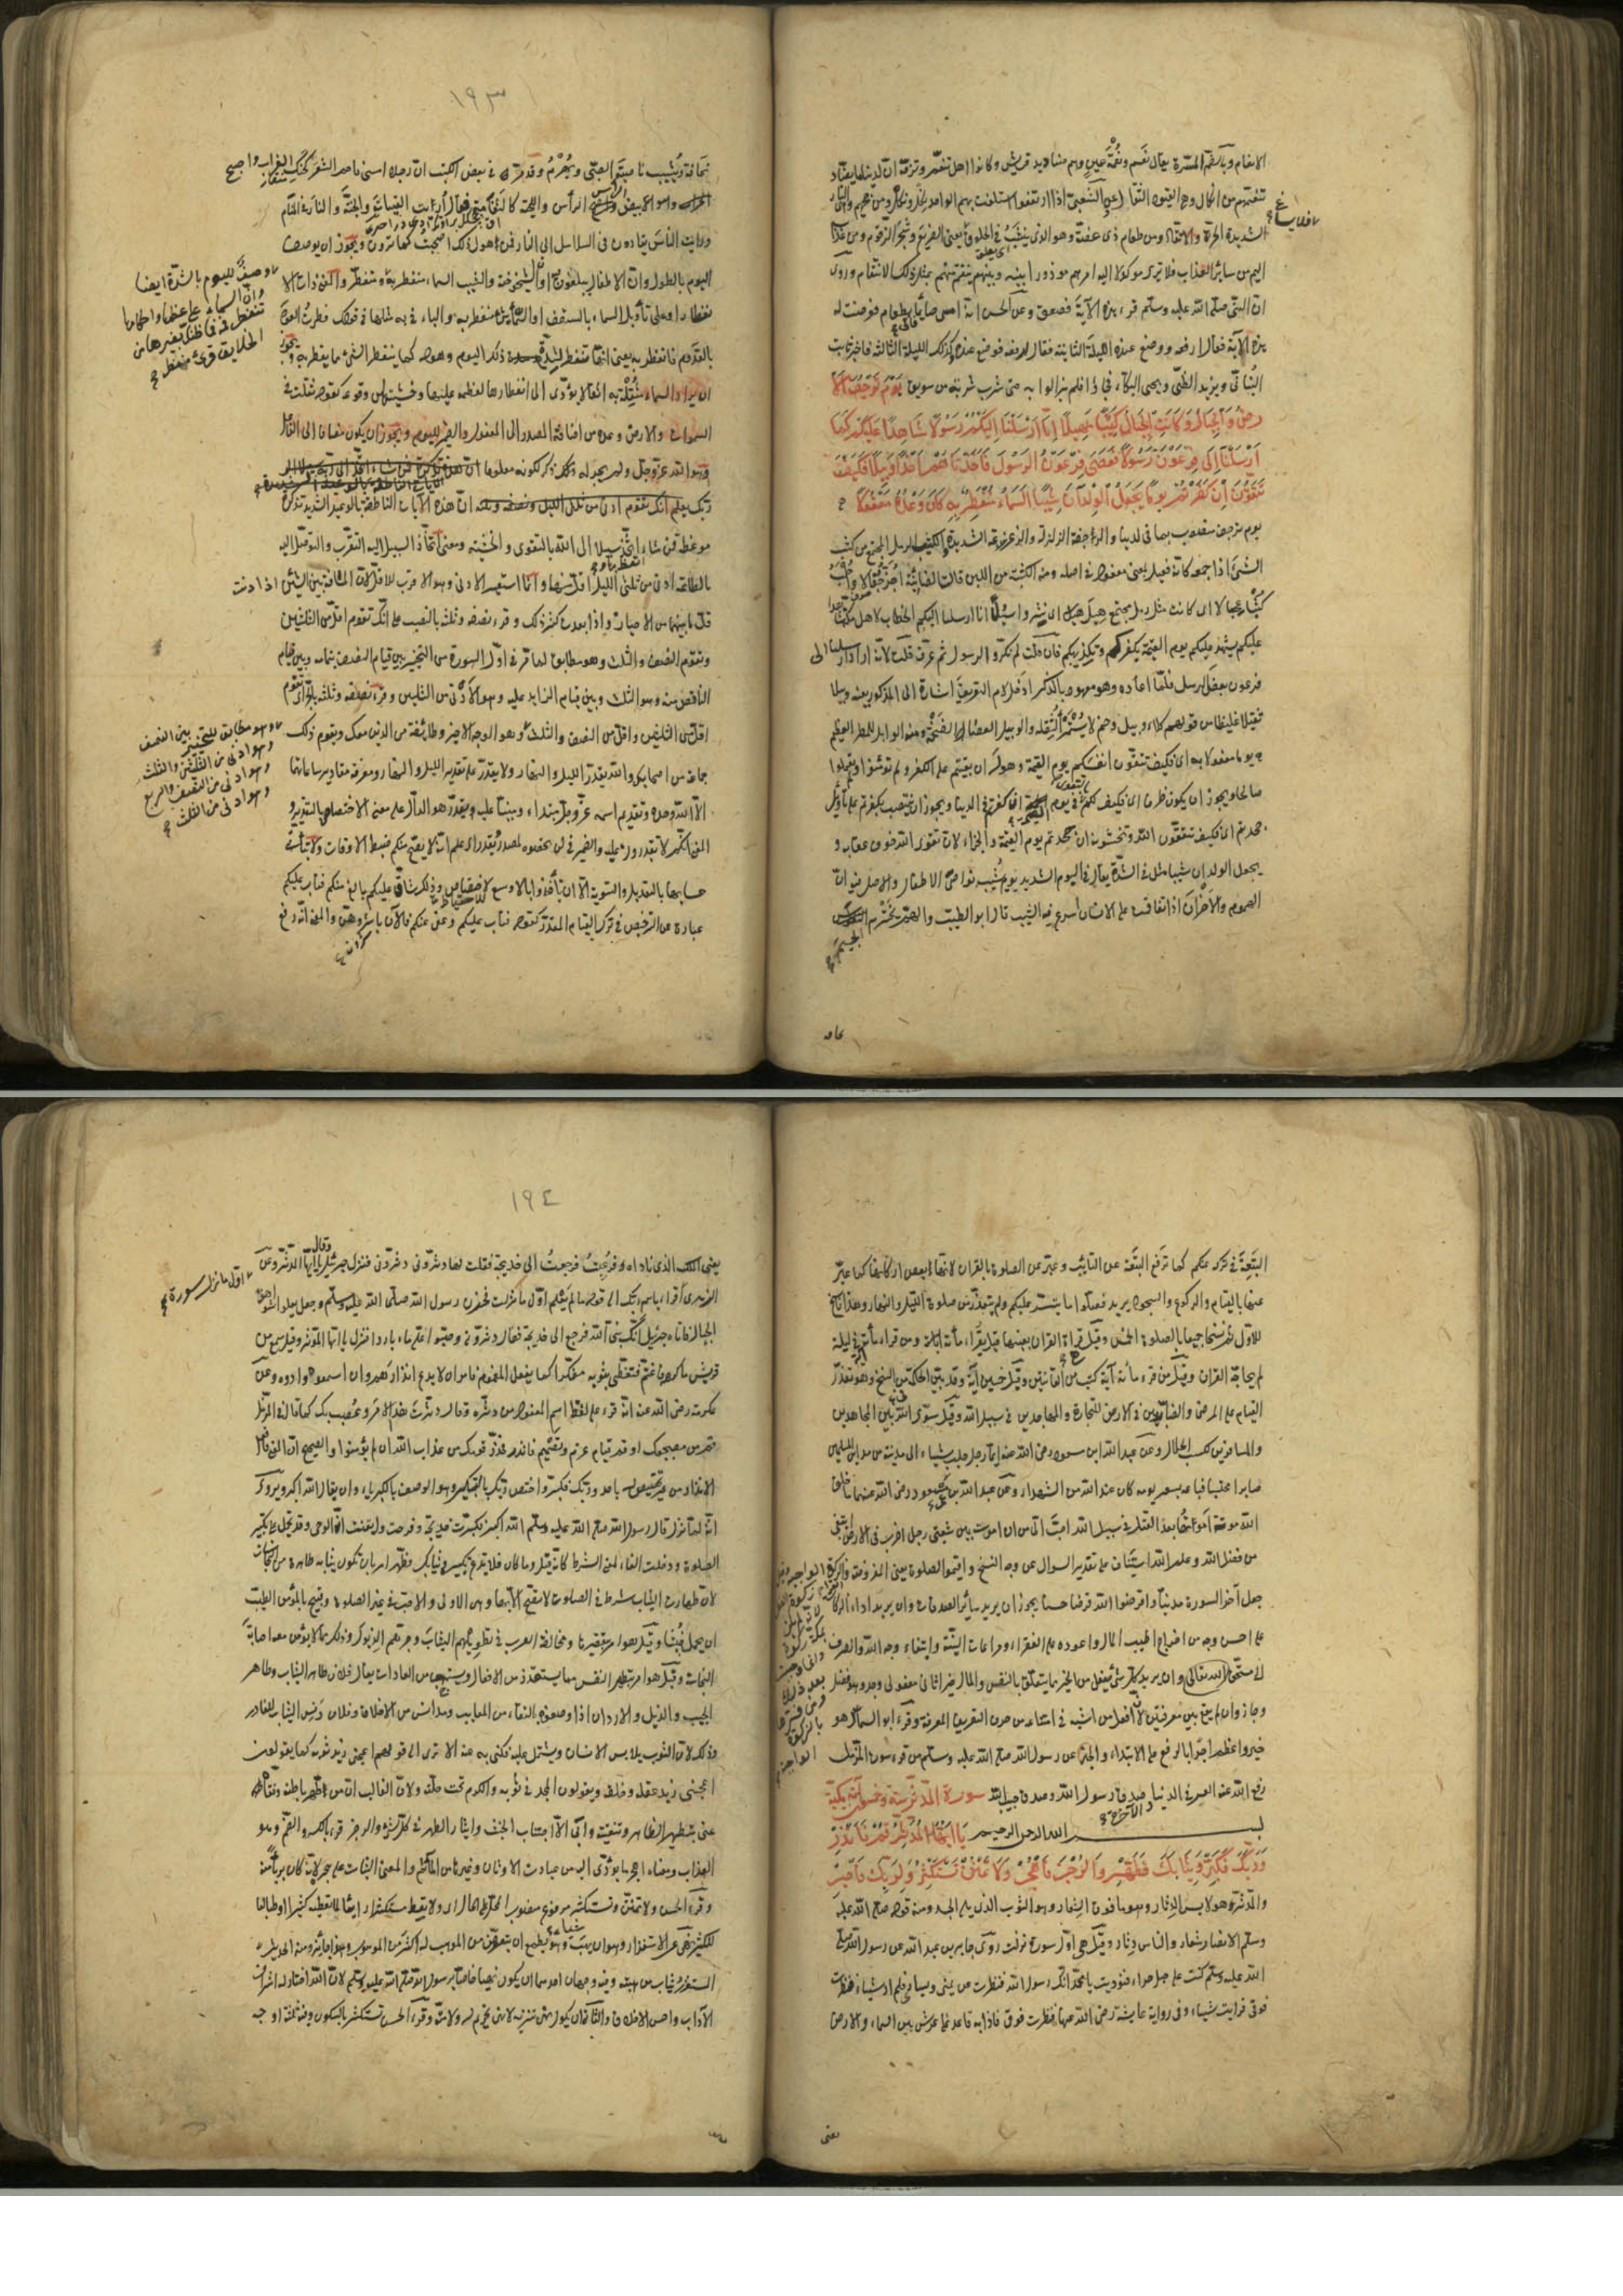 الانعام وبالضم المسرة يقال نعم ونعمة عين وهم صناديد قريش وكانوا اهل تنعم وترفه ان لدينا ما يضاد
تنعمهم من انكال وهي القيود الثقال عن الشعبي اذا ارتفعوا استلفت بهم الواحد نكل ونكل ومن جحيم وهي النار
الشديدة الحر والاتقاد ومن طعام ذي غصة وهو الذي ينشب في الحلوق يعني الضريع وشجر الزقوم ومن عذاب
اليم من سائر العذاب فلا ترى موكولا اليه امرهم موذورا بينه وبينهم ينتقم منهم بمثل ذلك الانتقام وروى
ان النبي صلى الله عليه وسلم قرء هذه الآية فصعق وعن الحسن انه امسى صائما فاتي بطعام فعرضت له
هذه الآية فقال ارفعه ووضع عنده الليلة الثانية فقال ارفعه فوضع عنده كذلك الليلة الثالثة فاخبر ثابت
البناني ويزيد الضبي ويحيى البكاء فجاؤا فلم يزالوا به حتى شرب شربة من سويق يَوْمَ تَرْجُفُ الْاَ
رْضُ وَالْجِبَالُ وَكَانَتِ الْجِبَالُ كَثِيبًا مَهِيلًا اِنَّا اَرْسَلْنَا اِلَيْكُمْ رَسُولًا شَاهِدًا عَلَيْكُمْ كَمَا
اَرْسَلْنَا اِلَى فِرْعَوْنَ رَسُولًا فَعَصَى فِرْعَوْنُ الرَّسُولَ فَاَخَذْنَاهُ اَخْذًا وَبِيلًا فَكَيْفَ
تَتَّقُونَ اِنْ كَفَرْتُمْ يَوْمًا يَجْعَلُ الْوِلْدَانَ شِيبًا السَّمَاءُ مُنْفَطِرٌ بِهِ كَانَ وَعْدُهُ مَفْعُولًا
يوم ترجف منصوب بما في لدينا والرجفة الزلزلة والزعزعة الشديدة والكثيب الرمل المجتمع من كثب
الشيء اذا جمعه كانه فعيل بمعنى مفعول في اصله ومنه الكثبة من اللبن قالت الضائنة اجز جفالا واحلب
كثبا عجالا اي كانت مثل رمل مجتمع هيل هيلا اي نثر واسيل انا ارسلنا اليكم الخطاب لاهل مكة شاهدا
عليكم يشهد عليكم يوم القيمة بكفركم وتكذيبكم فان قلت لم نكر الرسول ثم عرف قلت لانه اراد ارسلنا الى
فرعون بعض الرسل فلما اعاده وهو معهود بالذكر ادخل لام التعريف اشارة الى المذكور بعينه وبيلا
ثقيلا غليظا من قولهم كلاء وبيل وخم لا يستمرأ لثقله والوبيل العصا الضخمة ومنه الوابل للمطر العظيم
يوما مفعول به اي فكيف تتقون انفسكم يوم القيمة وهوله ان بقيتم على الكفر ولم تؤمنوا وتعملوا
صالحا ويجوز ان يكون ظرفا اي فكيف لكم بالتقوى في يوم القيمة ان كفرتم في الدنيا ويجوز ان ينتصب بكفرتم على تأويل
جحدتم اي فكيف تتقون الله وتخشونه ان جحدتم يوم القيمة والجزاء لان تقوى الله خوف عقابه و
يجعل الولدان شيبا مثل في الشدة يقال في اليوم الشديد يوم يشيب نواصي الاطفال والاصل فيه ان
الهموم والاحزان اذا تفاقمت على الانسان اسرع فيه الشيب قال ابو الطيب والهم يخترم
الجسيم
١٩٣
نحافة ويشيب ناصية الصبي ويهرم وقد مر في بعض الكتب ان رجلا امسى فاحم الشعر كحنك الغراب واصبح
وهو الابيض الرأس واللحية كالثغامة فقال أريت القيامة والجنة والنار في المنام
ورايت الناس يقادون في السلاسل الى النار فمن هول ذلك اصبحت كما ترون ويجوز ان يوصف
اليوم بالطول وان الاطفال يبلغون فيه اوان الشيخوخة والشيب السماء منفطر به
وصف لليوم بالشدة ايضا
وان السماء على عظمها واحكامها
تنفطر فيه فما ظنك بغيرها من
الخلايق قرئ منفطر
انفطار او على تأويل السماء بالسقف او السماء شيء منفطر به والباء في به مثلها في قولك فطرت العود
بالقدوم فانفطر به يعني انها تنفطر لشدة ذلك اليوم وهوله كما ينفطر الشيء بما يفطر به ويجوز
ان يراد السماء مثقلة به اثقالا يؤدي الى انفطارها لعظمه عليها وخشيتها من وقوعه كقوله ثقلت في
السموات والارض وعده من اضافة المصدر الى المفعول والضمير لليوم ويجوز ان يكون مضافا الى الفاعل
وهو الله عز وجل ولم يجر له ذكر لكونه معلوما
ربك يعلم انك تقوم ادنى من ثلثي الليل ونصفه وثلثه ان هذه الآيات الناطقة بالوعيد الشديد تذكرة
موعظة فمن شاء اتخذ سبيلا الى الله بالتقوى والخشية ومعنى اتخاذ السبيل اليه التقرب والتوسل اليه
بالطاعة ادنى من ثلثي الليل اقل منها وانما استعير الادنى وهو الاقرب للاقل لان المسافة بين الشيئين اذا دنت
قل ما بينهما من الاحياز واذا بعدت كثر ذلك وقرء نصفه وثلثه بالنصب على انك تقوم اقل من الثلثين
وتقوم النصف والثلث وهو مطابق لما مر في اول السورة من التخيير بين قيام النصف بتمامه وبين قيام
الناقص منه وهو الثلث وبين قيام الزايد عليه وهو الادنى من الثلثين وقرء نصفه وثلثه بالجر اي تقوم
اقل من الثلثين واقل من النصف والثلث
وهو مطابق للتخيير بين النصف
وهو ادنى من الثلثين والثلث
وهو ادنى من النصف والربع
وهو ادنى من الثلث
وهو الوجه الاخير وطائفة من الذين معك ويقوم ذلك
جماعة من اصحابك والله يقدر الليل والنهار ولا يقدر على تقدير الليل والنهار ومعرفة مقادير ساعاتهما
الا الله وحده وتقديم اسمه عز وجل مبتداء ومبنيا عليه يقدر هو الدال على معنى الاختصاص بالتقدير و
المعنى انكم لا تقدرون عليه والضمير في لن تحصوه لمصدر يقدر اي علم انه لا يصح منكم ضبط الاوقات ولا يتأتى
حسابها بالتعديل والتسوية الا ان تأخذوا بالاوسع للاحتياط وذلك شاق عليكم بالغ منكم فتاب عليكم
عبارة عن الترخيص في ترك القيام المقدر كقوله فتاب عليكم وعفا عنكم فالآن باشروهن والمعنى انه رفع
التبعة في تركه عنكم كما ترفع التبعة عن التائب وعبر عن الصلوة بالقران لانها بعض اركانها كما عبر
عنها بالقيام والركوع والسجود يريد فصلوا ما تيسر عليكم ولم يتعذر من صلوة الليل والنهار وهذا ناسخ
للاول ثم نسخا جميعا بالصلوة الخمس وقيل قراة القران بعينها قيل يقراء مأئة اية ومن قراء مأئة اية في ليلة
لم يحاجه القران وقيل من قرء مأئة آية كتب من القانتين وقيل خمسين آية وقد بين الحكمة في النسخ وهو تعذر
القيام على المرضى والضاربين في الارض للتجارة والمجاهدين في سبيل الله وقيل سوى الله بين المجاهدين
والمسافرين لكسب الحلال وعن عبد الله ابن مسعود رضى الله عنه ايما رجل جلب شياء الى مدينة من مداين المسلمين
صابرا محتسبا فباعه بسعر يومه كان عند الله من الشهداء وعن عبد الله بن عمر رضى الله عنهما ما خلق
الله موتة اموتها بعد القتل في سبيل الله احب الي من ان اموت بين شعبتي رحل اضرب في الارض ابتغى
من فضل الله وعلم الله استيناف على تقدير السوال عن وجه النسخ واقيموا الصلوة يعني المفروضة والزكوة الواجبة
جعل آخر السورة مدنيا واقرضوا الله قرضا حسنا يجوز ان يريد سائر الصدقات وان يريد اداء الزكاة
على احسن وجه من اخراج اطيب المال واعوده على الفقراء ومراعات النية وابتغاء وجه الله والصرف
الى مستحق الله تعالى وان يريد كل شئ يفعل من الخير مما يتعلق بالنفس والمال خيرا ثاني مفعولى وجد وهو فصل
وجاز وان لم يقع بين معرفتين لان افعل من اشبه في امتناعه من حرف التعريف المعرفة وقرء ابو السمال هو
خير واعظم اجرا بالرفع على الابتداء والخبر عن رسول الله صلى الله عليه وسلم من قرء سورة المزمل
رفع الله عنه العسر في الدنيا والآخرة صدق رسول الله وصدق حبيب الله سورة المدثر ستة وخمسون آية مكية
بسم الله الرحمن الرحيم يَا اَيُّهَا الْمُدَّثِّرُ قُمْ فَاَنْذِرْ
وَرَبَّكَ فَكَبِّرْ وَثِيَابَكَ فَطَهِّرْ وَالرُّجْزَ فَاهْجُرْ وَلَا تَمْنُنْ تَسْتَكْثِرُ وَلِرَبِّكَ فَاصْبِرْ
والمدثر هو لابس الدثار وهو ما فوق الشعار وهو الثوب الذي يلى الجسد ومنه قوله صلى الله عليه
وسلم الانصار شعار والناس دثار وقيل هي اول سورة نزلت روى جابر بن عبد الله عن رسول الله صلى
الله عليه وسلم كنت على جبل حراء فنوديت يا محمد انك رسول الله فنظرت عن يمينى ويسارى فلم ار شياء فنظرت
فوقى فرايت شياء وفي رواية عايشة رضى الله عنها فنظرت فوقى فاذا به قاعد على عرش بين السماء والارض
يعنى
١٩٤
يعنى الملك الذي ناداه فرعبت فرجعت الى خديجة فقلت لها دثرونى دثرونى فنزل جبرئيل وقال يا ايها المدثر وعن
الزهرى اول ما نزل سورة اقراء باسم ربك الى قوله ما لم يعلم
اول ما نزلت فحزن رسول الله صلى الله عليه وسلم وجعل يعلو شواهق
الجبال فاتاه جبرئيل انك نبى الله فرجع الى خديجة فقال دثرونى وصبوا على ماء باردا فنزل يا ايها المدثر وقيل سمع من
قريش ما كرهه فاغتم فتغطى بثوبه مفكرا كما يفعل المغموم فامر ان لا يدع انذارهم وان اسمعوه واذوه وعن
عكرمة رضى الله عنه انه قرء على لفظ اسم المفعول من دثره وقال دثرت هذا الامر وعصب بك كما قال في المزمل
قم من مضجعك او قم قيام عزم وتصميم فانذر فحذر قومك من عذاب الله ان لم يؤمنوا والصحيح ان المعنى فافعل
الانذار من غير تخصيص له باحد وربك فكبر واختص ربك بالتكبير وهو الوصف بالكبرياء وان يقال الله اكبر ويروى
انه لما نزل قال رسول الله صلى الله عليه وسلم الله اكبر فكبرت خديجة وفرحت وايقنت انه الوحى وقد يحمل على تكبير
الصلوة ودخلت الفاء لمعنى الشرط كانه قيل وما كان فلا تدع تكبيره وثيابك فطهر امر بان تكون ثيابه طاهرة من النجاسات
لان طهارة الثياب شرط في الصلوة لا تصح الا بها وهى الاولى والاحب في غير الصلوة وقبيح بالمؤمن الطيب
ان يحمل خبثا وقيل هو امر بتقصيرها ومخالفة العرب في تطويلهم الثياب وجرهم الذيول وذلك ما لا يؤمن معه اصابة
النجاسة وقيل هو امر بتطهير النفس مما يستقذر من الافعال ويستهجن من العادات يقال فلان طاهر الثياب وطاهر
الجيب والذيل والاردان اذا وصفوه بالنقاء من المعايب ومدانس من الاخلاق وفلان دنس الثياب للغادر
وذلك لان الثوب يلابس الانسان ويشتمل عليه فكنى به عنه الا ترى الى قولهم اعجبنى زيد ثوبه كما يقولون
اعجبنى زيد عقله وخلقه ويقولون المجد في ثوبه والكرم تحت حلته ولان الغالب ان من طهر باطنه ونقاه
عنى بتطهير الظاهر وتنقيته وابى الا اجتناب الخبث وايثار الطهر في كل شئ والرجز قرء بالكسر والضم وهو
العذاب ومعناه اهجر ما يؤدى اليه من عبادة الاوثان وغيرها من المآثم والمعنى الثبات على هجره لانه كان بريئا منه
وقرء الحسن ولا تمنن وتستكثر مرفوع منصوب المحل على الحال اى ولا تعط مستكثرا رائيا لما تعطيه كثيرا او طالبا
للكثير نهى عن الاستغزار وهو ان يهب شياء وهو يطمع ان يتعوض من الموهوب له اكثر من الموهوب وهذا جائز ومنه الحديث
المستغزر يثاب من هبته وفيه وجهان احدهما ان يكون نهيا خاصا برسول الله صلى الله عليه وسلم لان الله اختار له اشرف
الآداب واحسن الاخلاق والثانى ان يكون نهى تنزيه لا نهى تحريم له ولامته وقرء الحسن تستكثر بالسكون وفيه ثلثة اوجه